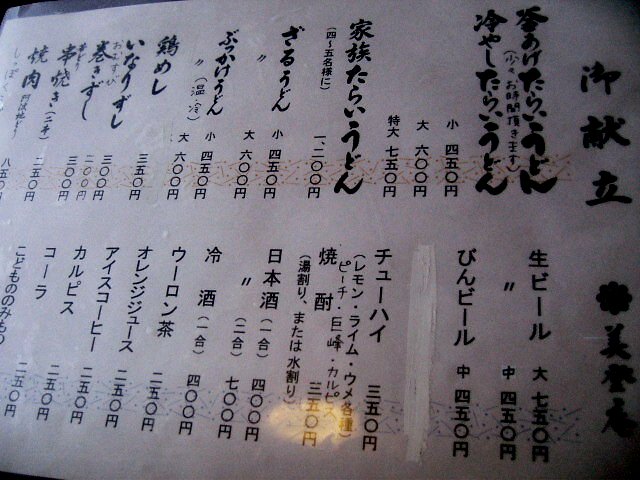 御献立
釜あげたらいうどん
(少々お時間頂きます)
冷やしたらいうどん
小 四五〇円
大 六〇〇円
特大 七五〇円
家族たらいうどん
(四〜五名様に)
一、二〇〇円
ざるうどん 小 四五〇円
〃 大 六〇〇円
ぶっかけうどん 小 四五〇円
〃(温・冷) 大 六〇〇円
鶏めし
いなりずし 三五〇円
おむすび 三〇〇円
巻きずし 二〇〇円
串焼き(二本) 三〇〇円
焼肉 二五〇円
八五〇円
美登庵
生ビール 大 七五〇円
〃 中 四五〇円
びんビール 中 四五〇円
チューハイ 三五〇円
(レモン・ライム・ウメ各種)
ピーチ・巨峰・カルピス
焼酎 三五〇円
(湯割り、または水割り)
日本酒(一合) 四〇〇円
〃(二合) 七〇〇円
冷酒(一合) 四〇〇円
ウーロン茶 二五〇円
オレンジジュース 二五〇円
アイスコーヒー 二五〇円
カルピス 二五〇円
コーラ 二五〇円
こどもののみもの 二五〇円